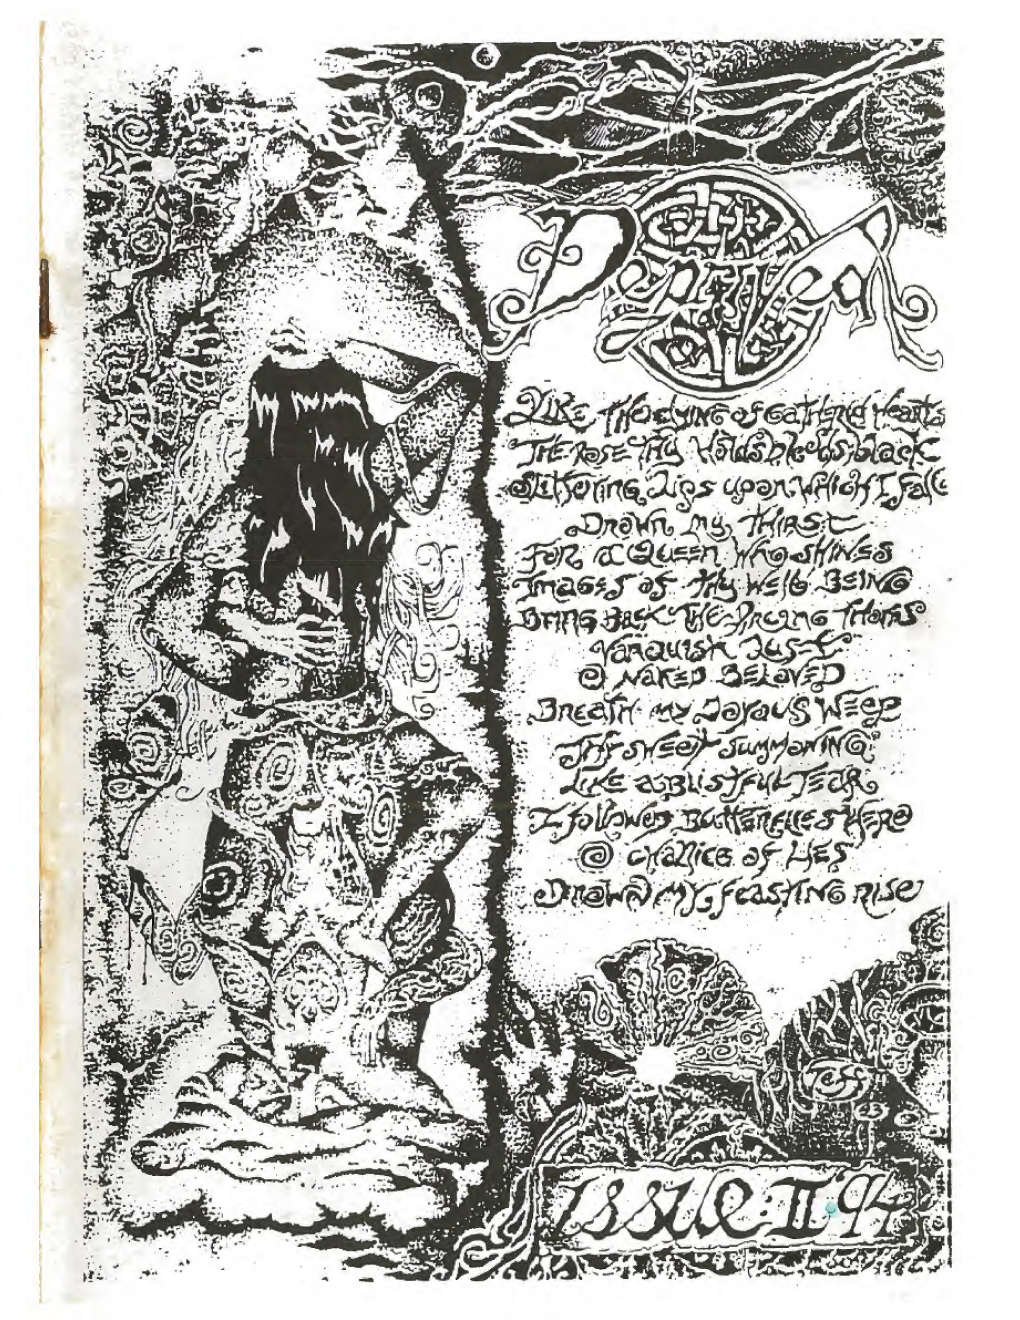 Deprived
Like the dying of gathering hearts
The rose thy holds bleeds black
Slittering lips upon which I fall
Drown my thirst
For a Queen who shines
Images of thy well being
Bring back the piercing thorns
Vanquish lust
O naked beloved
Breath my joyous weep
Thy sweet summoning
Like a blistful tear
I followed butterflies here
O chalice of lies
Drawn my feasting rise
Issue: II 94